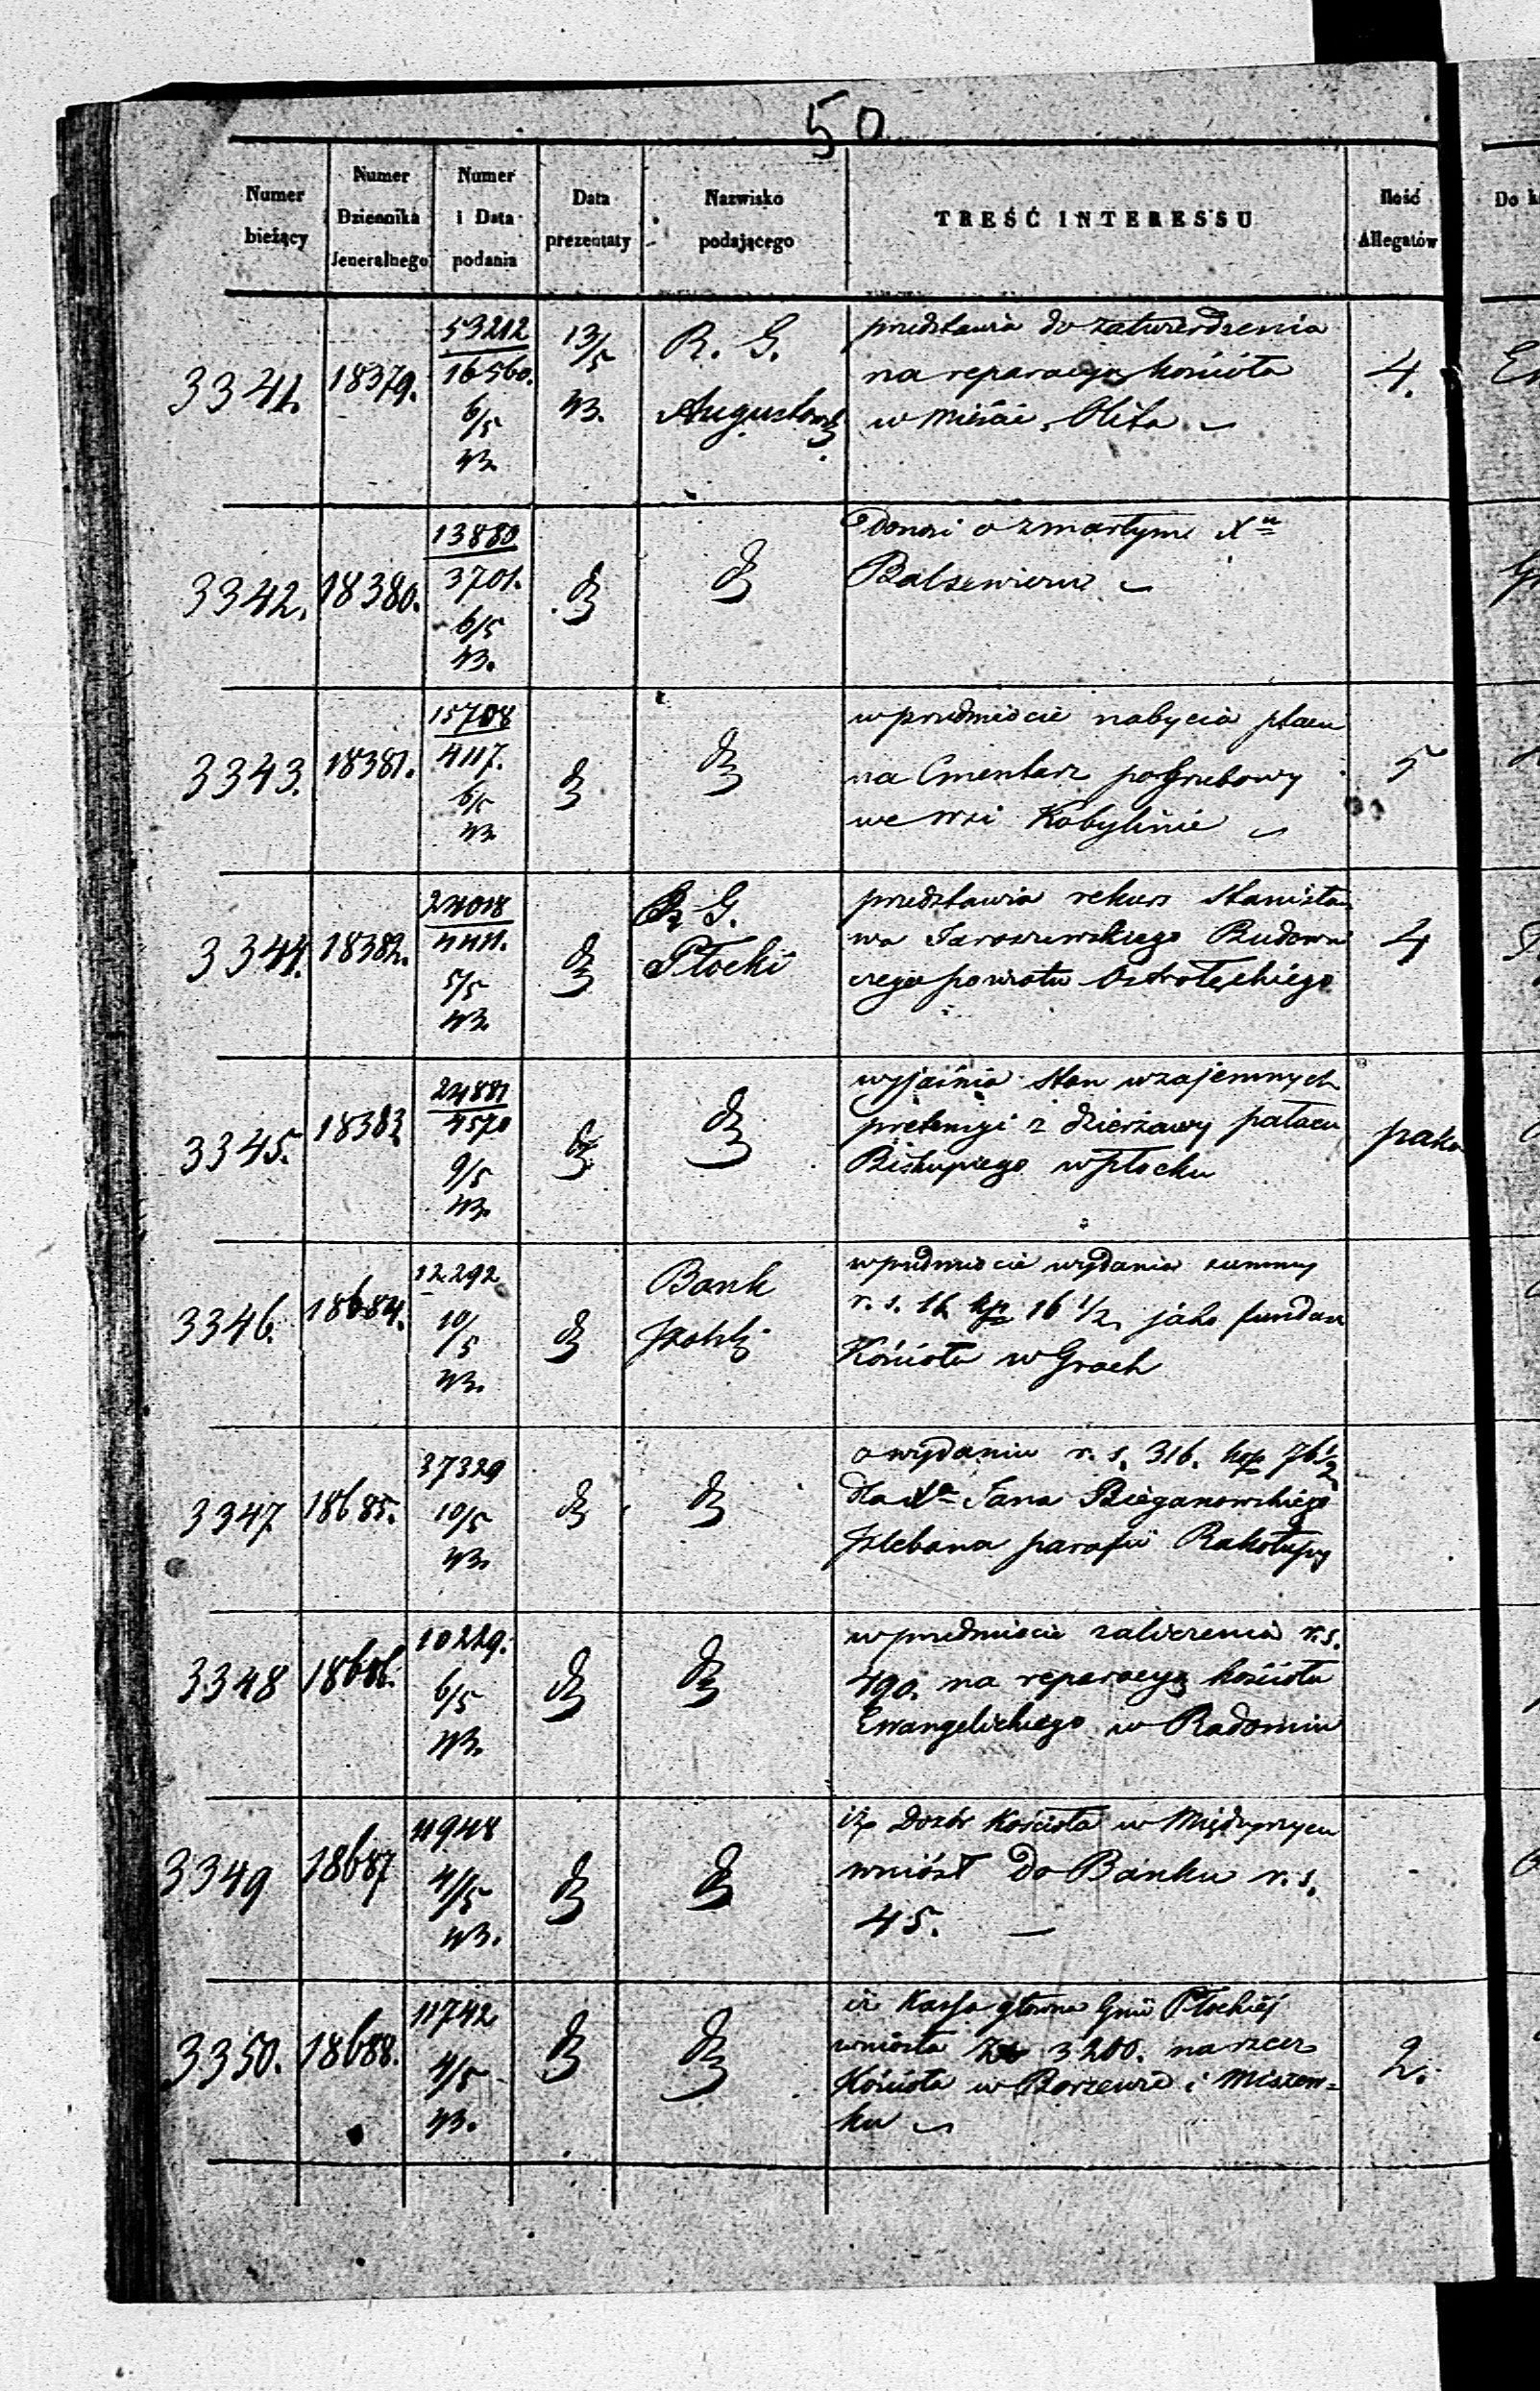 50
Numer bieżący
Numer Dziennika Jeneralnego
Numer i Data podania
Data prezentaty
Nazwisko podającego
TREŚĆ INTERESSU
Ilość Allegatów
3341. 18379. 53212 13/5 R. G. przedstawia do zatwierdzenia
16560. 43. Augustowski na reparacyą kościoła 4.
6/5 w mieście Olita
43.
3342. 18380. 13880 Donosi o zmarłym Xu
3701. Balsewiczu
6/5
43.
3343. 18381. 15708 w przedmiocie nabycia placu
4117. na Cmentarz pogrzebowy 5
6/5 we wsi Kobylinie
43.
3344. 18382. 24018 R. G. przedstawia rekurs Stanisła
4411. Płocki wa Jaroszewskiego Budowni 4
5/5 czego powiatu Ostrołęckiego
43.
3345. 18383 24881 wyjaśnia stan wzajemnych
4570 pretensyi z dzierżawy pałacu
9/5 Biskupiego w Płocku
43.
3346. 18684. 12292 Bank w przedmiocie wydania summy
10/5 Polski r. s. 16 kp 16 1/2 jako fundusz
43. Kościoła w Grach
3347 18685. 37329 o wydaniu r. s. 316. kop 76 1/2
10/5 dla Xa Jana Bieganowskiego
43. Plebana parafii Rakołupy
3348 18686. 10229. w przedmiocie zaliczenia r. s.
6/5 490. na reparacyą kościoła
43. Ewangelickiego w Radomiu
3349 18687 11948 iż Dozór Kościoła w Międzyrzycu
4/5 wniósł do Banku r. s.
43. 45.
3350. 18688. 11742 iż Kassa główna Gnii Płockiej
4/5 wniosła 3200. na rzecz 2.
43. Kościoła w Borzewie i Miszew=
ku